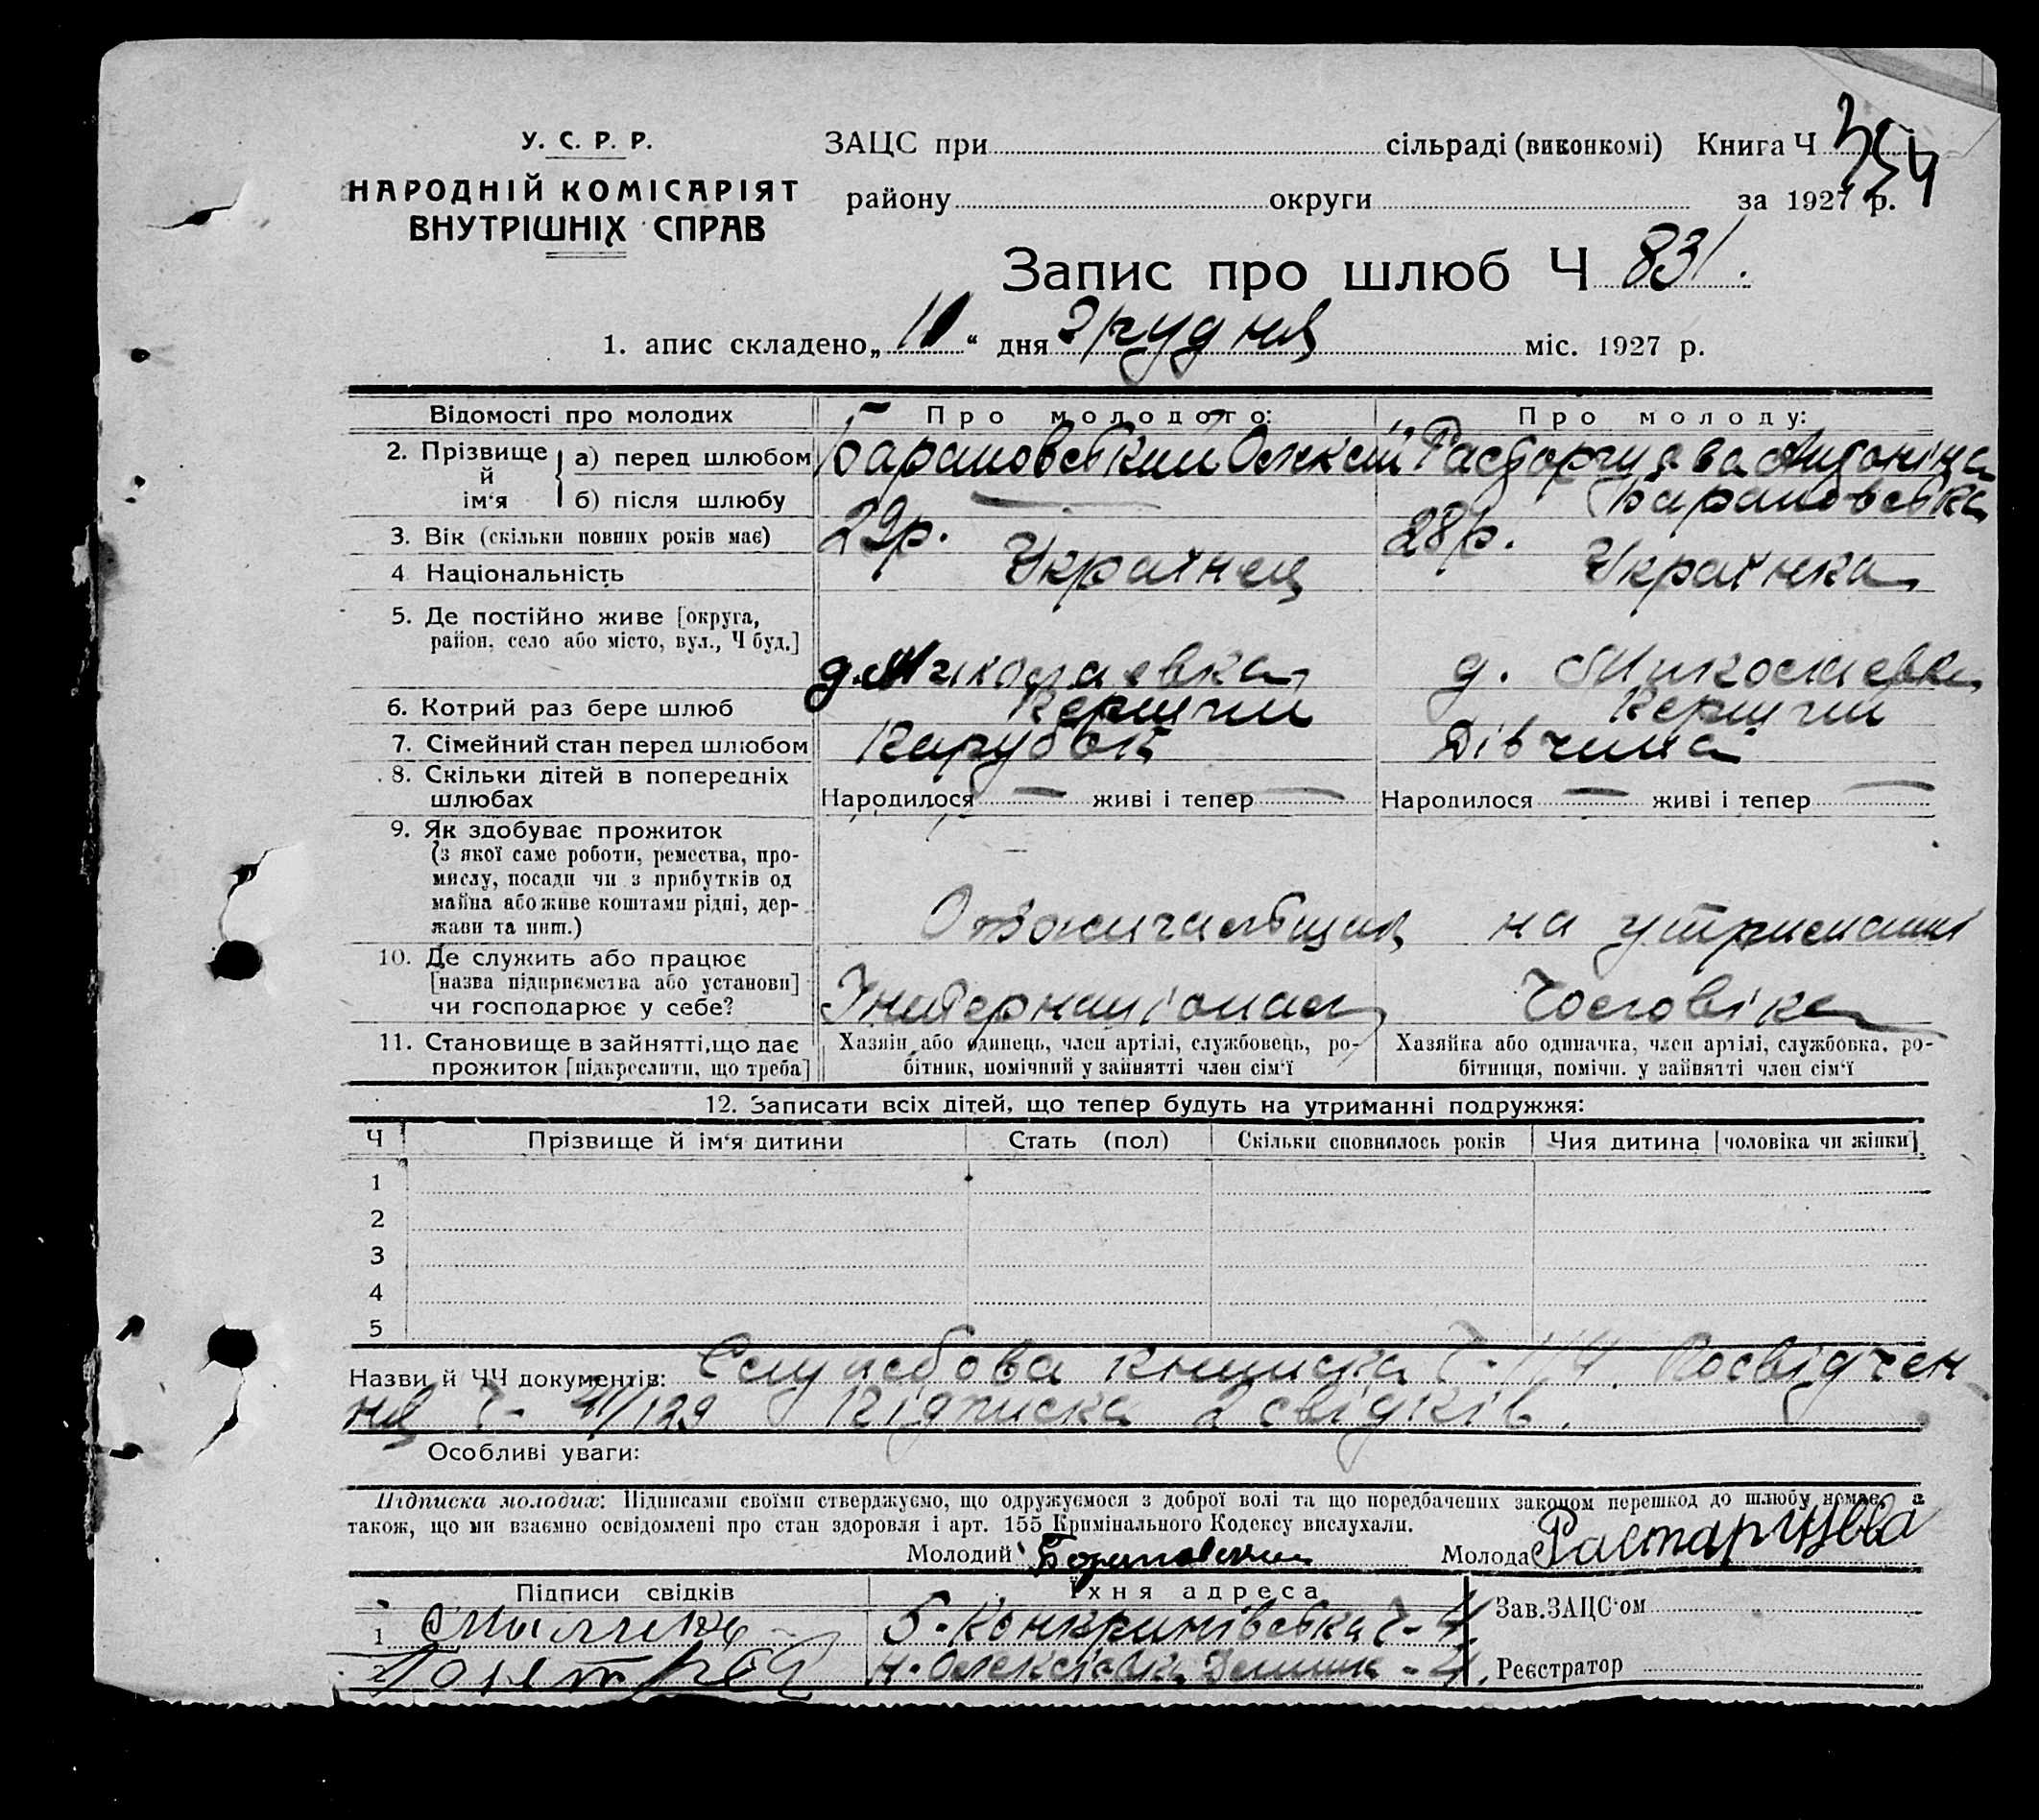 У. С. Р. Р.
НАРОДНІЙ КОМІСАРІЯТ
ВНУТРІШНІХ СПРАВ
ЗАЦС при сільраді (виконкомі) Книга Ч 354
району округи за 1927 р.
Запис про шлюб Ч 831.
1. апис складено „ “ дня Грудня міс. 1927 р.
Відомості про молодих Про молодого: Про молоду:
2. Прізвище й ім‘я { а) перед шлюбом Барановський Олексій Расторгуєва Антоніна
б) після шлюбу — Барановська
3. Вік (скільки повних років має) 29р. 28р.
4 Національність Українец Українка
5. Де постійно живе [округа,
район, село або місто, вул., Ч буд.] д. Миколаевка д. Миколаевка
6. Котрий раз бере шлюб Перший Перший
7. Сімейний стан перед шлюбом Парубок Дівчина
8. Скільки дітей в попередніх
шлюбах Народилося — живі і тепер — Народилося — живі і тепер —
9. Як здобуває прожиток
(з якої саме роботи, ремества, про-
мислу, посади чи з прибутків од
майна або живе коштами рідні, дер-
жави та инш.) на утриманні
10. Де служить або працює
[назва підприємства або установи]
чи господарює у себе? Чоловіка
11. Становище в зайнятті, що дає
прожиток [підкреслити, що треба]
Хазяїн або одинець, член артілі, службовець, ро-
бітник, помічний у зайнятті член сім‘ї
Хазяйка або одиначка, член артілі, службовка, ро-
бітниця, помічн. у зайнятті член сім‘ї
12. Записати всіх дітей, що тепер будуть на утриманні подружжя:
Ч Прізвище й ім‘я дитини Стать (пол) Скільки сповнилось років Чия дитина [чоловіка чи жінки]
1
2
3
4
5
Назви й ЧЧ документів: Службова книжка Ч- Посвідчен-
ня Ч- /129 Підписка 2 свідків.
Особливі уваги:
Підписка молодих: Підписами своїми стверджуємо, що одружуємося з доброї волі та що передбачених законом перешкод до шлюбу немає, а
також, що ми взаємно освідомлені про стан здоровля і арт. 155 Кримінального Кодексу вислухали.
Молодий Барановский Молода Растаргуева
Підписи свідків Їхня адреса Зав. ЗАЦС‘ом
1
2 Реєстратор